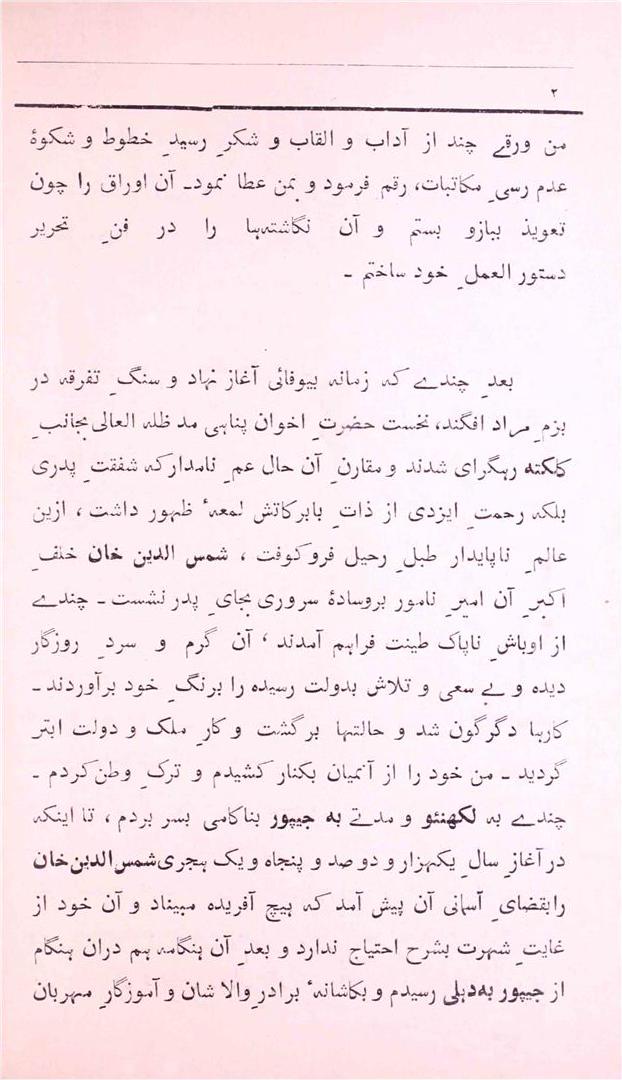 ۲
من ورقے چند از آداب و القاب و شکرِ رسیدِ خطوط و شکوۂ
عدم رسیِ مکاتبات، رقم فرمود و بمن عطا نمود۔ آن اوراق را چون
تعویذ ببازو بستم و آن نگاشتہ‌ہا را در فنِ تحریر
دستور العملِ خود ساختم ۔
بعدِ چندے کہ زمانہ بیوفائی آغاز نہاد و سنگِ تفرقہ در
بزمِ مراد افگند، نخست حضرتِ اخوان پناہی مد ظلہ العالی بجانبِ
کلکتہ رہگرای شدند و مقارنِ آن حال عمِ نامدار کہ شفقتِ پدری
بلکہ رحمتِ ایزدی از ذاتِ بابرکاتش لمعہٴ ظہور داشت ، ازین
عالمِ ناپایدار طبلِ رحیل فرو کوفت ، شمس الدین خان خلفِ
اکبرِ آن امیرِ نامور بروسادۂ سروری بجای پدر نشست ۔ چندے
از اوباشِ ناپاک طینت فراہم آمدند ، آن گرم و سردِ روزگار
دیدہ و بے سعی و تلاش بدولت رسیدہ را برنگِ خود برآوردند ۔
کارہا دگرگون شد و حالتہا برگشت و کارِ ملک و دولت ابتر
گردید ۔ من خود را از آنمیان بکنار کشیدم و ترکِ وطن کردم ۔
چندے بہ لکھنئو و مدتے بہ جیپور بناکامی بسر بردم ، تا اینکہ
در آغازِ سالِ یکہزار و دو صد و پنجاہ و یک ہجری شمس الدین خان
را بقضای آسمانی آن پیش آمد کہ ہیچ آفریدہ مبیناد و آن خود از
غایتِ شہرت بشرح احتیاج ندارد و بعدِ آن ہنگامہ ہم دران ہنگام
از جیپور بہ دہلی رسیدم و بکاشانہٴ برادرِ والا شان و آموزگارِ مہربان